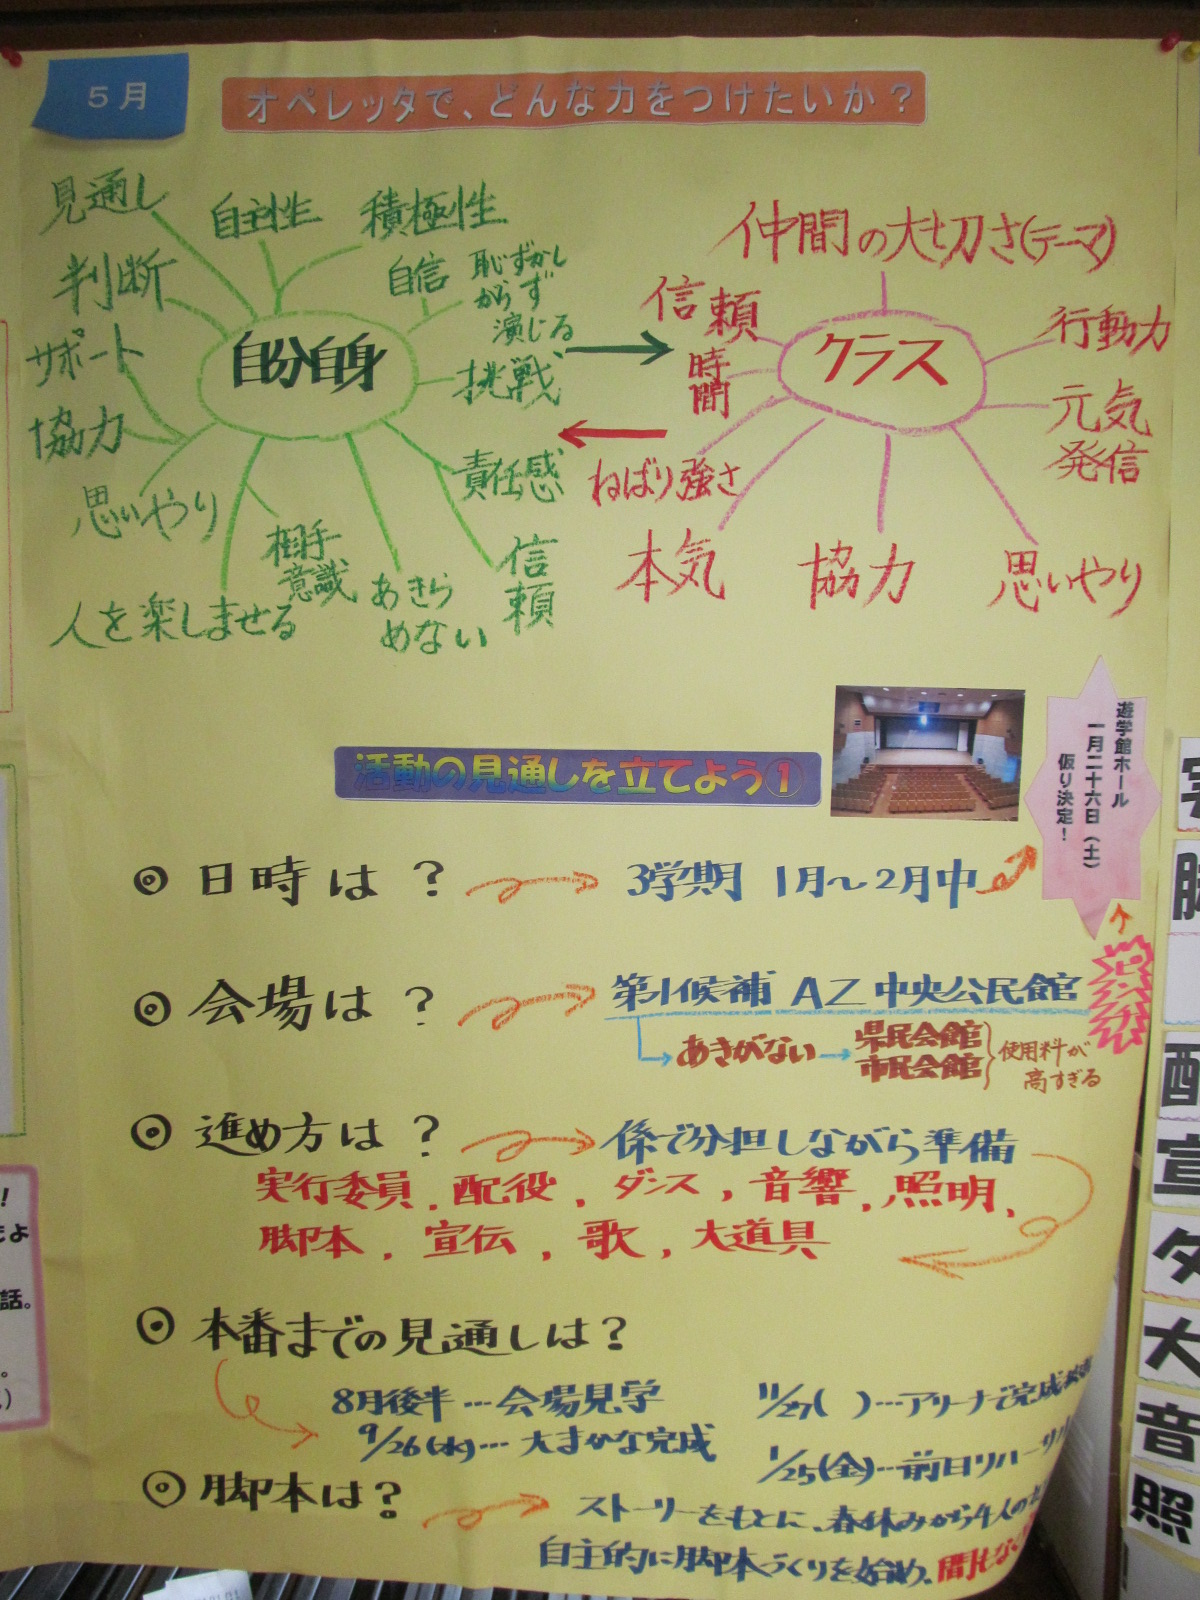 5月
オペレッタで、どんな力をつけたいか?
見通し
自主性
積極性
判断
自信
恥ずかし
がらず
演じる
サポート
自分自身
挑戦
協力
責任感
思いやり
相手
意識
信頼
人を楽しませる
あきら
めない
仲間の大切さ(テーマ)
信頼
時間
クラス
行動力
元気
発信
ねばり強さ
本気
協力
思いやり
遊学館ホール
一月二十六日(土)
仮り決定!
活動の見通しを立てよう①
◎日時は?
3学期 1月~2月中
◎会場は?
第1候補 AZ中央公民館
ピンチ
あきがない
県民会館
市民会館
使用料が
高すぎる
◎進め方は?
係で分担しながら準備
実行委員、配役、ダンス、音響、照明、
脚本、宣伝、歌、大道具
◎本番までの見通しは?
8月後半…会場見学
9/26(水)…大まかな完成
11/27( )…アリーナで完成
1/25(金)…前日リハーサル
◎脚本は?
ストーリーをもとに、春休みから4人の
自主的に脚本づくりを始め、間もなく
!
話。
実
脚
配
宣
ダ
大
音
照